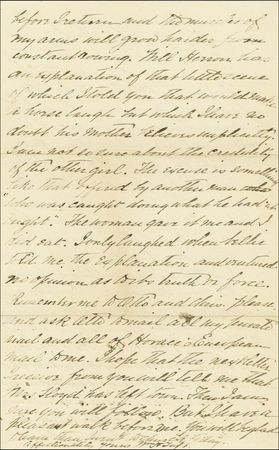 before I return and the muscles of
my arms will grow harder from
constant rowing. Will Herron has
an explanation of that little scene
of which I told you that would make
a horse laugh but which I have no
doubt his mother believes implicitly.
I am not so sure about the credulity
of the other girl. The excuse is something
like that offered by another man who
was caught doing what he had
"The woman gave it me and I
did eat. I only laughed when he
told me the explanation and ventured
no opinion as to its truth or force.
Remember me to Otto and please
and ask Otto to mail all my private
mail and all of Horace's European
mail to me. I hope that the next letter
I receive from you will tell me that
Lloyd has left town. Then I am
sure you will follow. But I have a
pleasant walk before me. You will